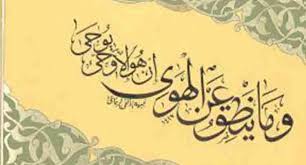 وما ينطق عن الهوى ان هو الا وحي يوحى